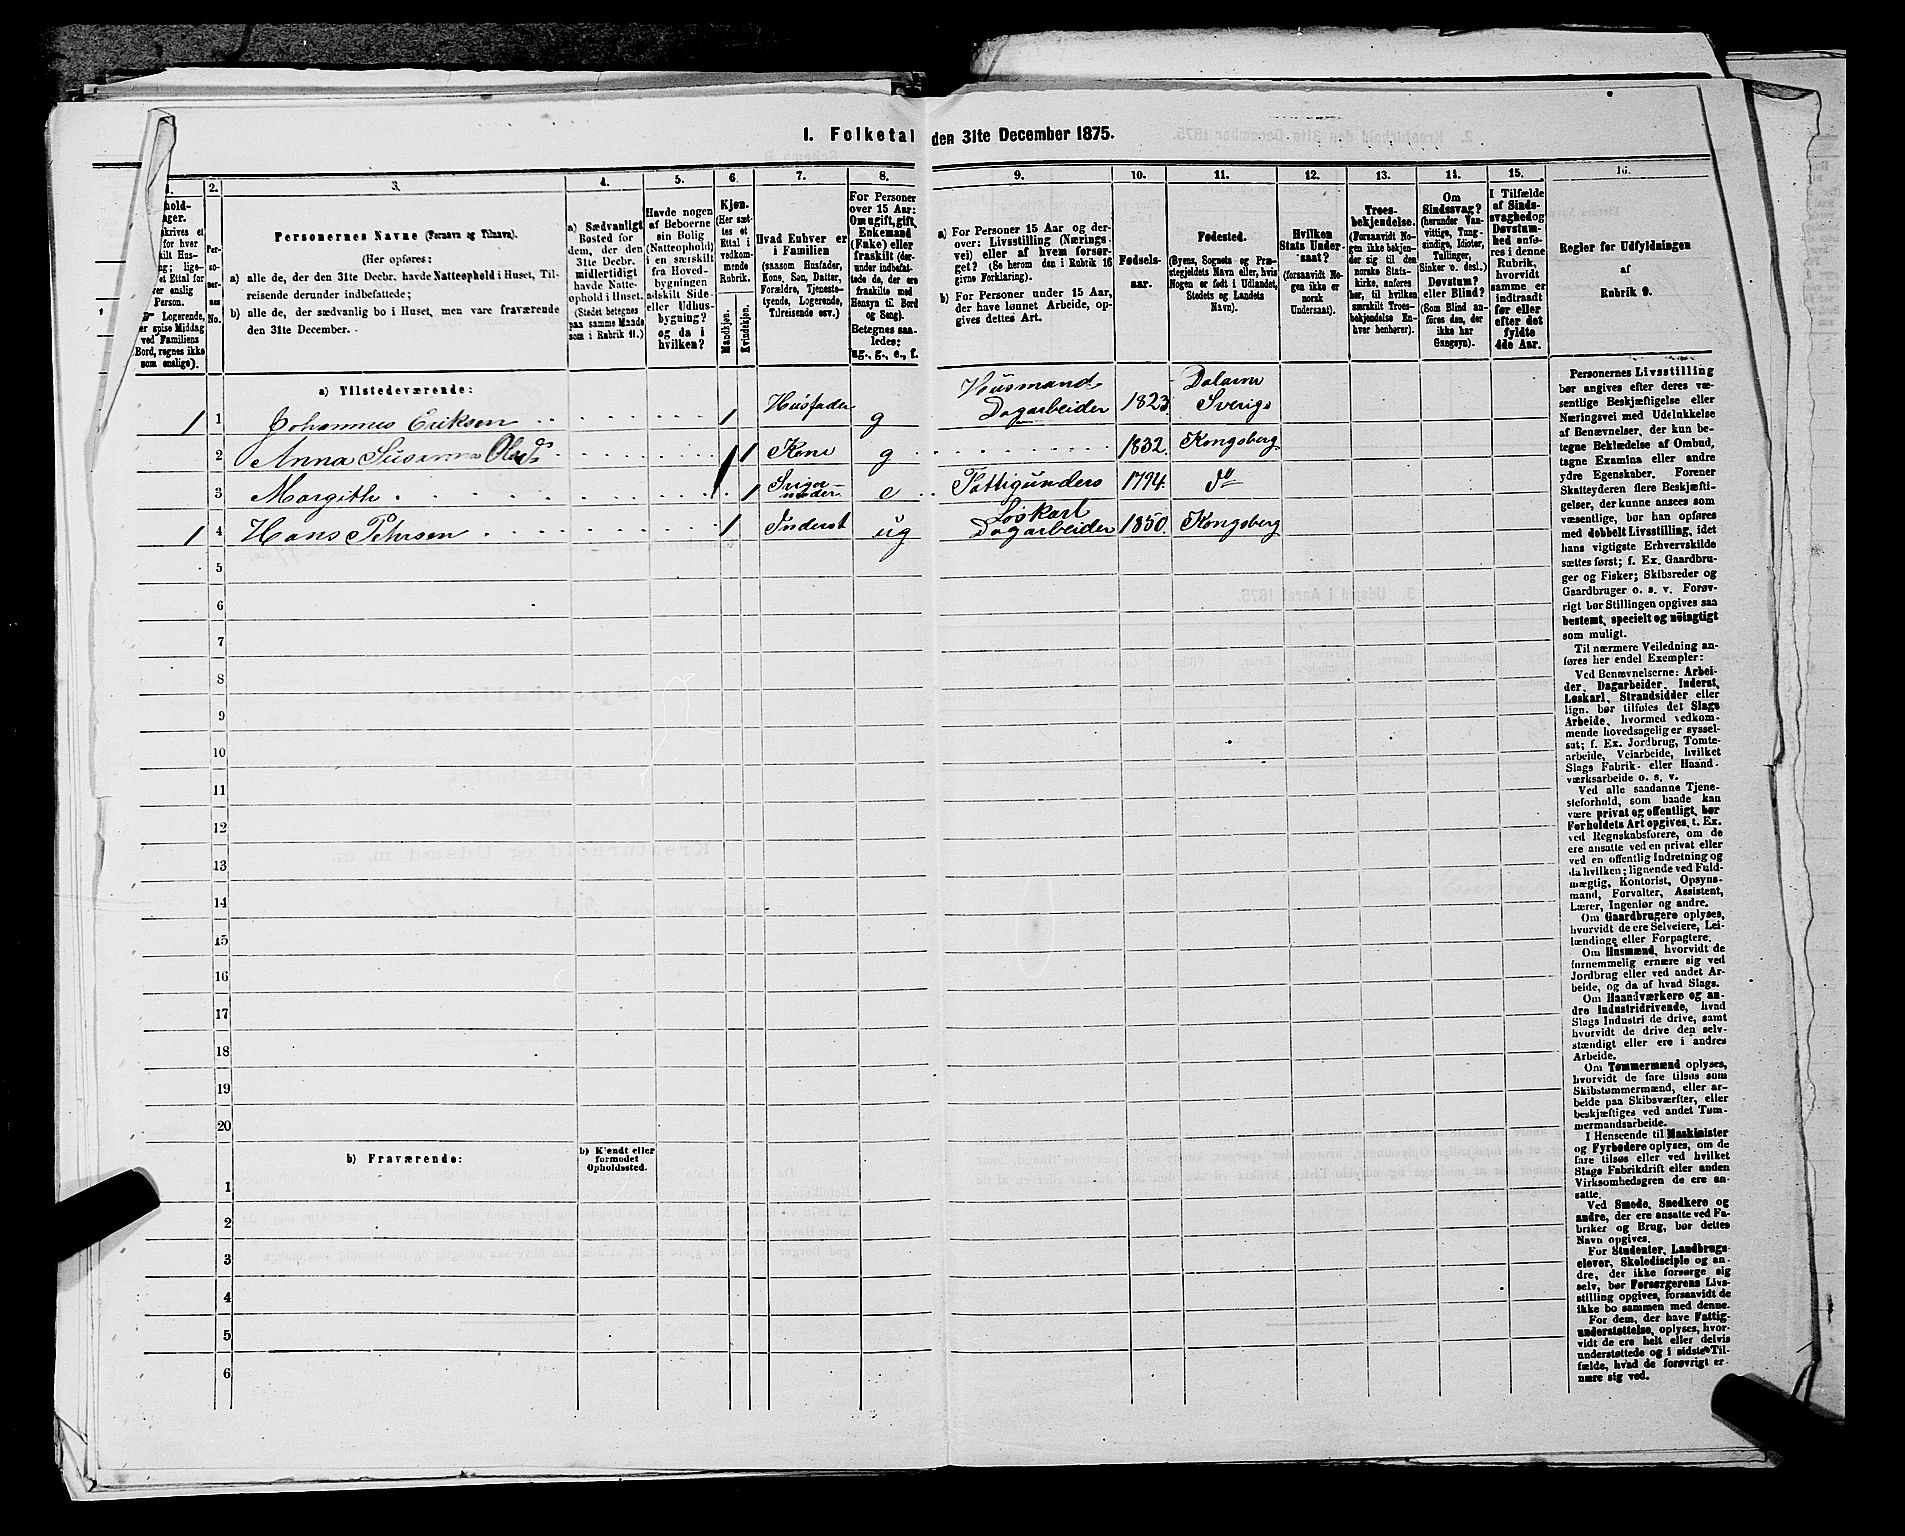 I. Folketal den 31te December 1875.
1. 2. 3. 4. 5. 6. 7. 8. 9. 10. 11. 12. 13. 14. 15. 16.
Per-
so-
ner-
nes
No.
Personernes Navne (Fornavn og Tilnavn).
(Her opføres:
a) alle de, der den 31te Decbr. havde Natteophold i Huset, Til-
reisende derunder indbefattede;
b) alle de, der sædvanlig bo i Huset, men vare fraværende
den 31te December.
a) Sædvanligt
Bosted for
dem, der den
31te Decbr.
midlertidigt
havde Natte-
ophold i Huset.
(Stedet betegnes
paa samme Maade
som i Rubrik 11.)
Havde nogen
af Beboerne
sin Bolig
(Natteophold)
i en særskilt
fra Hoved-
bygningen
adskilt Side-
eller Udhus-
bygning?
og da i
hvilken?
Kjøn.
(Her sæt-
tes et
Ettal i
vedkom-
mende
Rubrik.
Mandkjøn.
Kvindekjøn.
Hvad Enhver er
i Familien
(saasom Husfader,
Kone, Søn, Datter,
Forældre, Tjeneste-
tyende, Logerende,
Tilreisende osv.)
For Personer
over 15 Aar:
Om ugift, gift,
Enkemand
(Enke) eller
fraskilt (der-
under indbefat-
tede de, der ere
fraskilte med
Hensyn til Bord
og Seng).
Betegnes saa-
ledes:
ug., g., e., f.
a) For Personer 15 Aar og der-
over: Livsstilling (Nærings-
vei) eller af hvem forsør-
get? (Se herom den i Rubrik 16
givne Forklaring).
b) For Personer under 15 Aar,
der have lønnet Arbeide, op-
gives dettes Art.
Fødsels-
aar.
Fødested.
(Byens, Sognets og Præ-
stegjeldets Navn eller, hvis
Nogen er født i Udlandet,
Stedets og Landets
Navn).
Hvilken
Stats Under-
saat?
(forsaavidt No-
gen ikke er
norsk
Undersaat).
Troes-
bekjendelse.
(Forsaavidt No-
gen ikke bekjen-
der sig til den
norske Stats-
kirke, anføres
her, til hvilken
særskilt Troes-
bekjendelse En-
hver henhører).
Om
Sindssvag?
(herunder Van-
vittige, Tung-
sindige, Idioter,
Tullinger,
Sinker o. desl.)
Døvstum?
eller Blind?
(Som Blind an-
føres den, der
ikke har
Gangsyn).
I Tilfælde
af Sinds-
svaghed og
Døvstum-
hed anfø-
res i denne
Rubrik,
hvorvidt
samme er
indtraadt
før eller
efter det
fyldte
4de Aar.
Regler for Udfyldningen
af
Rubrik 9.
a) Tilstedeværende:
1 1 Johannes Eriksen 1 Husfader g Husmand Dagarbeider 1823 Dalarne Sverige
2 Anna Susanna 1 Kone g 1832 Kongsberg
3 Margith 1 e 1794 do
1 4 Hans Pehrsen 1 Inderst ug Løskarl Dagarbeider 1850 Kongsberg
5
6
7
8
9
10
11
12
13
14
15
16
17
18
19
20
b) Fraværende:
b) Kjendt eller
formodet
Opholdssted.
1
2
3
4
5
6
Personernes Livsstilling
bør angives efter deres væ-
sentlige Beskjæftigelse eller
Næringsvei med Udelukkelse
af Benævnelser, der kun be-
tegne Beklædelse af Ombud,
tagne Examina eller andre
ydre Egenskaber. Forener
Skatteyderen flere Beskjæfti-
gelser, der kunne ansees som
væsentlige, bør han opføres
med dobbelt Livsstilling, idet
hans vigtigste Erhvervskilde
sættes først; f. Ex. Gaardbru-
ger og Fisker; Skibsreder og
Gaardbruger o. s. v. Forøv-
rigt bør Stillingen opgives saa
bestemt, specielt og nøiagtigt
som muligt.
Til nærmere Veiledning an-
føres her endel Exempler:
Ved Benævnelserne: Arbei-
der, Dagarbeider, Inderst,
Løskarl, Strandsidder eller
lign. bør tilføies det Slags
Arbeide, hvormed vedkom-
mende hovedsagelig er syssel-
sat; f. Ex. Jordbrug, Tomte-
arbeide, Veiarbeide, hvilket
Slags Fabrik- eller Haand-
værksarbeide o. s. v.
Ved alle saadanne Tjene-
steforhold, som baade kan
være privat og offentligt, bør
Forholdets Art opgives, t. Ex.
ved Regnskabsførere, om de
ere ansatte ved en privat eller
ved en offentlig Indretning og
da hvilken; lignende ved Fuld-
mægtig, Kontorist, Opsyns-
mand, Forvalter, Assistent,
Lærer, Ingeniør og andre.
Om Gaardbrugere oplyses,
hvorvidt de ere Selveiere, Lei-
lændinge eller Forpagtere.
Om Husmænd, hvorvidt de
fornemmelig ernære sig ved
Jordbrug eller ved andet Ar-
beide, og da af hvad Slags.
Om Haandværkere og an-
dre Industridrivende, hvad
Slags Industri de drive, samt
hvorvidt de drive den selv-
stændigt eller ere i andres
Arbeide.
Om Tømmermænd oplyses,
hvorvidt de fare tilsøs som
Skibstømmermænd, eller ar-
beide paa Skibsværfter, eller
beskjæftiges ved andet Tøm-
mermandsarbeide.
I Henseende til Maskinister
og Fyrbødere oplyses, om de
fare tilsøs eller ved hvilket
Slags Fabrikdrift eller anden
Virksomhedsgren de ere an-
satte.
Ved Smede, Snedkere og
andre, der ere ansatte ved Fa-
briker og Brug, bør dettes
Navn opgives.
For Studenter, Landbrugs-
elever, Skoledisciple og an-
dre, der ikke forsørge sig
selv, bør Forsørgerens Livs-
stilling opgives, forsaavidt de
ikke bo sammen med denne.
For dem, der have Fattig-
understøttelse, oplyses, hvor-
vidt de ere helt eller delvis
understøttede og i sidste Til-
fælde, hvad de forøvrigt er-
nære sig ved.